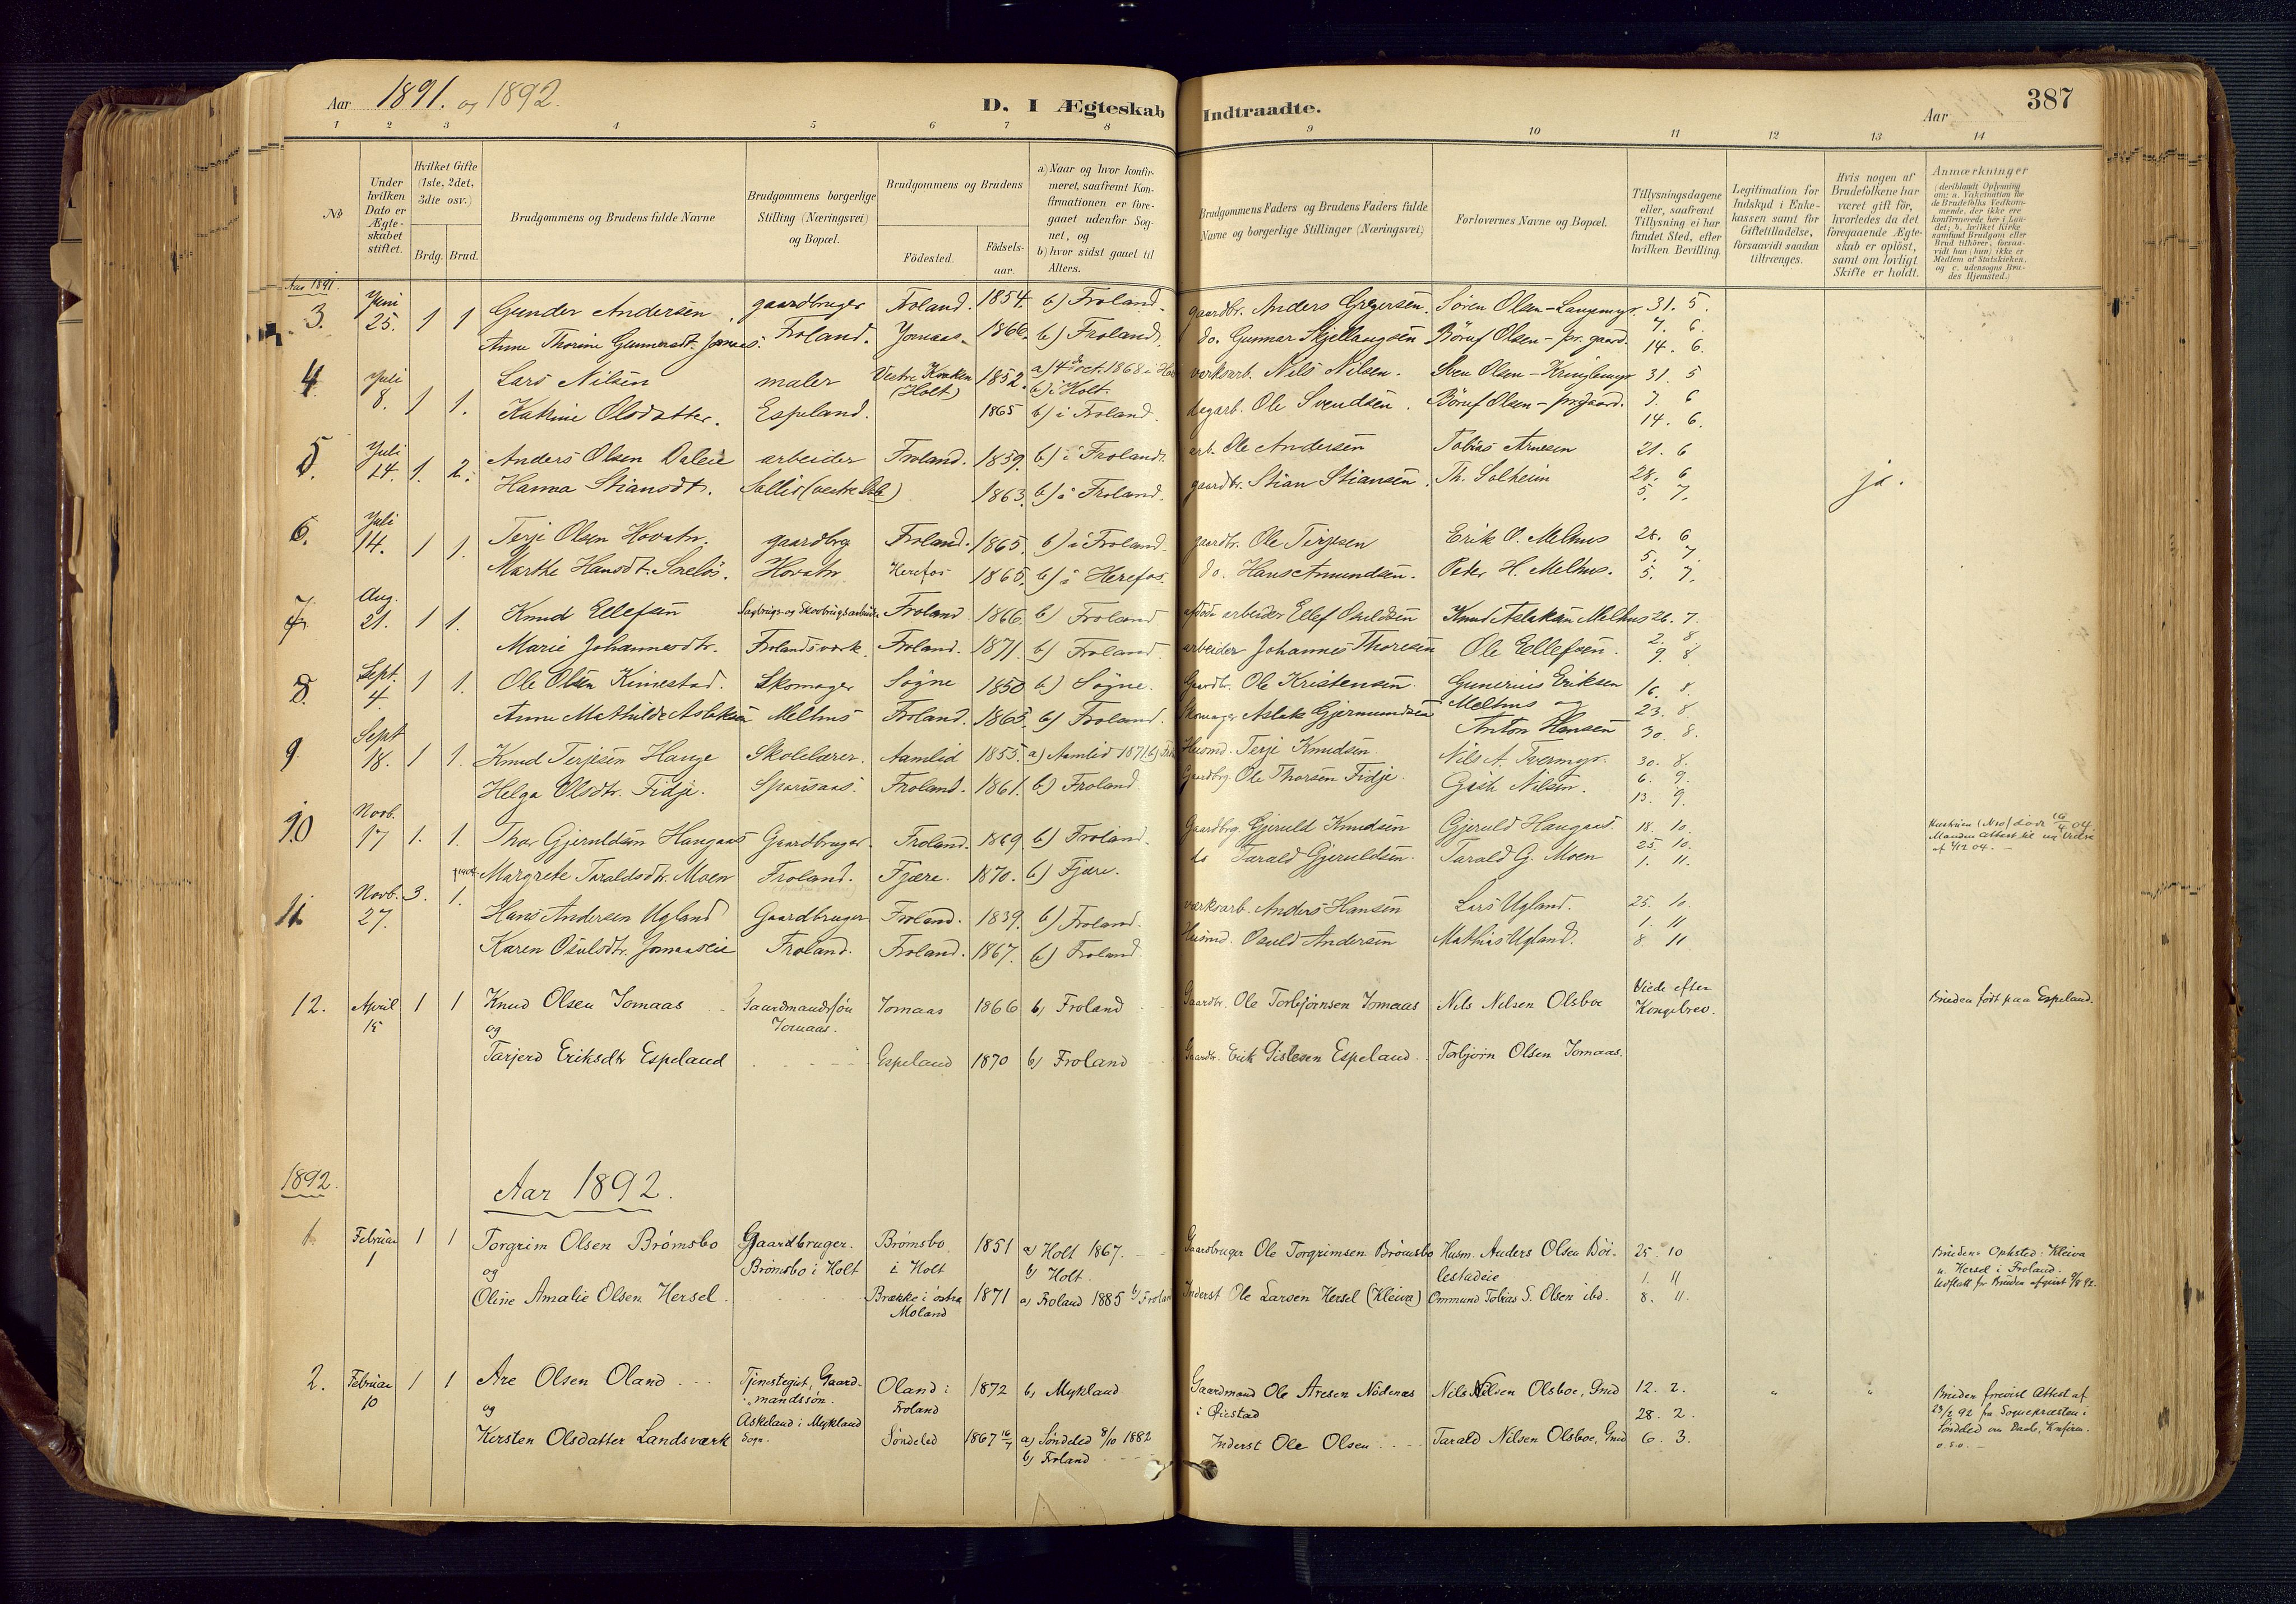 Aar 1891. og 1892.
D. I Ægteskab Indtraadte.
Aar
387
1 2 3 4 5 6 7 8 9 10 11 12 13 14
No
Under hvilken Dato er Ægteskabet stiftet.
Hvilket Gifte (1ste, 2det, 3die osv.)
Brdg. Brud.
Brudgommens og Brudens fulde Navne
Brudgommens borgerlige Stilling (Næringsvei) og Bopæl.
Brudgommens og Brudens
Födested.
Födselsaar.
a) Naar og hvor konfirmeret, saafremt Konfirmationen er foregaaet udenfor Sognet, og
b) hvor sidst gaaet til Alters.
Brudgommens Faders og Brudens Faders fulde Navne og borgerlige Stillinger (Næringsvei)
Forlovernes Navne og Bopæl.
Tillysningsdagene eller, saafremt Tillysning ei har fundet Sted, efter hvilken Bevilling.
Legitimation for Indskud i Enkekassen samt for Giftetilladelse, forsaavidt saadan tiltrænges.
Hvis nogen af Brudefolkene har været gift før, hvorledes da det foregaaende Ægteskab er opløst, samt om lovligt Skifte er holdt.
Anmærkninger
Aar 1891.
3. Juni 25. 1 1 Gunder Andersen gaardbruger Froland. 1854. b) Froland. gaardbr. Anders Gregersen. Søren Olsen - Langemyr. 31. 5.
Anne Thorine Gunnarsdt. Jomaas. Froland. Jomaas. 1866. b) Froland. do. Gunnar Skjellaugsen Böruf Olsen - pr. gaard. 7. 6.
14. 6.
4. Juli 8. 1 1. Lars Nilsen maler (Holt) 1852. b) i Holt. værksarb. Nils Nilsen. Sven Olsen - Kringlemyr 31. 5
Katrine Olsdatter. Espeland. 1865 b) i Froland. dagarb. Ole Svendsen. Böruf Olsen - pr. gaard. 7. 6
14. 6.
5. Juli 14. 1. 2. Anders Olsen Daleie arbeider Froland. 1859. b) i Froland. arb. Ole Andersen Tobias Arnesen 21. 6
Hanna Stiansdt. 1863. b) i Froland. gaardbr. Stian Stiansen. Th. Solheim 28. 6 ja.
5. 7.
6. Juli 14. 1 1. Terje Olsen Hovatn. gaardbrg Froland. 1865. b) i Froland. gaardbr. Ole Terjesen Erik O. Melhus 28. 6
Marthe Hansdt. Hovatn Herefos 1865. b) i Herefos. do. Hans Amundsen. Peder H. Melhus. 5. 7.
5. 7.
7 Aug. 21. 1 1. Knud Ellefsen Froland 1866. b) Froland afdöde arbeider Ellef Osuldsen Knud Aslaksen Melhus 26. 7.
Marie Johannesdtr. Frolandsværk. Froland. 1871. b) Froland. arbeider Johannes Thoresen Ole Ellefsen. 2. 8.
9. 8.
8. Sept. 4. 1 1. Ole Olsen Kinnestad. Skomager Søgne 1850 b) Søgne. Gaardbr. Ole Kristensen. Gunerius Eriksen 16. 8.
Anne Mathilde Aslaksen Melhus Froland. 1865. b) Froland. Skomager Aslak Gjermundsen Melhus og 23. 8.
Anton Hansen 30. 8.
9. Sept 18. 1 1. Knud Terjesen Hauge Skolelærer. Aamlid 1855. a) Aamlid 1871 Husmd. Terje Knudsen. Nils A. Tvermyr. 30. 8.
Helga Olsdtr. Fidje. Froland. 1861. b) Froland Gaardbrg. Ole Thorsen Fidje. Nilsen. 6. 9.
13. 9.
10 Novb. 17 1. 1. Thor Gjeruldsen Haugaas Gaardbruger. Froland. 1869. b) Froland. Gaardbrg. Gjeruld Knudsen Gjeruld Haugaas. 18. 10.
Margrete Taraldsdtr. Moen Froland. Fjære. 1870. b) Fjære. do Tarald Gjeruldsen. Tarald G. Moen 25. 10.
1. 11.
11 Novb. 27. 3. 1. Hans Andersen Ugland Gaardbruger Froland. 1839. b) Froland. værksarb. Anders Hansen Lars Ugland. 25. 10.
Karen Osulsdtr. Jomaaseie Froland. Froland. 1867. b) Froland. Husmd. Osuld Andersen Mathias Ugland. 1. 11
8. 11.
12. April 15 1 1 Knud Olsen Jomaas Gaardmandssøn Jomaas 1866 b) Froland Gaardbr. Ole Torbjørnsen Jomaas Nils Nilsen Olsboe Viede efter Kongebrev. Bruden født paa Espeland.
og Jomaas.
Tarjerd Eriksdtr Espeland Espeland 1870 b) Froland Gaardbr. Erik Gislesen Espeland. Torbjørn Olsen Jomaas.
1892.
Aar 1892.
1 Februar 1 1 1 Torgrim Olsen Brømsbo Gaardbruger. Brømsbo 1851 a) Holt 1867. Gaardbruger Ole Torgrimsen Brømsbo Husm. Anders Olsen Böilestadeie 25. 10
og Brømsbo i Holt i Holt b) Holt. 1. 11
Oline Amalie Olsen Hersel. Brække i østre Moland 1871 a) Froland 1885 b) Froland Inderst Ole Larsen Hersel (Kleiva) Ommund Tobias S. Olsen ibd. 8. 11.
Brudens Ophsted: Kleiva u. Hersel i Froland.
2. Februar 10 1 1 Are Olsen Oland Tjenstegut, Gaardmandssøn. Oland i Froland 1872 b) Mykland Gaardmand Ole Aresen Nödenes i Øiestad Nils Nilsen Olsboe, Gmd 12. 2.
og Askeland i Mykland Sogn. 28. 2.
Kirsten Olsdatter Landsværk Søndeled 1867 16/7 a) Søndeled 8/10 1882 b) Froland Inderst Ole Olsen Tarald Nilsen Olsboe, Gmd 6. 3.
Bruden forevist Attest af 23/2 92 fra Sognepræsten i Søndeled om Daab, Konfirm. o.s.v.